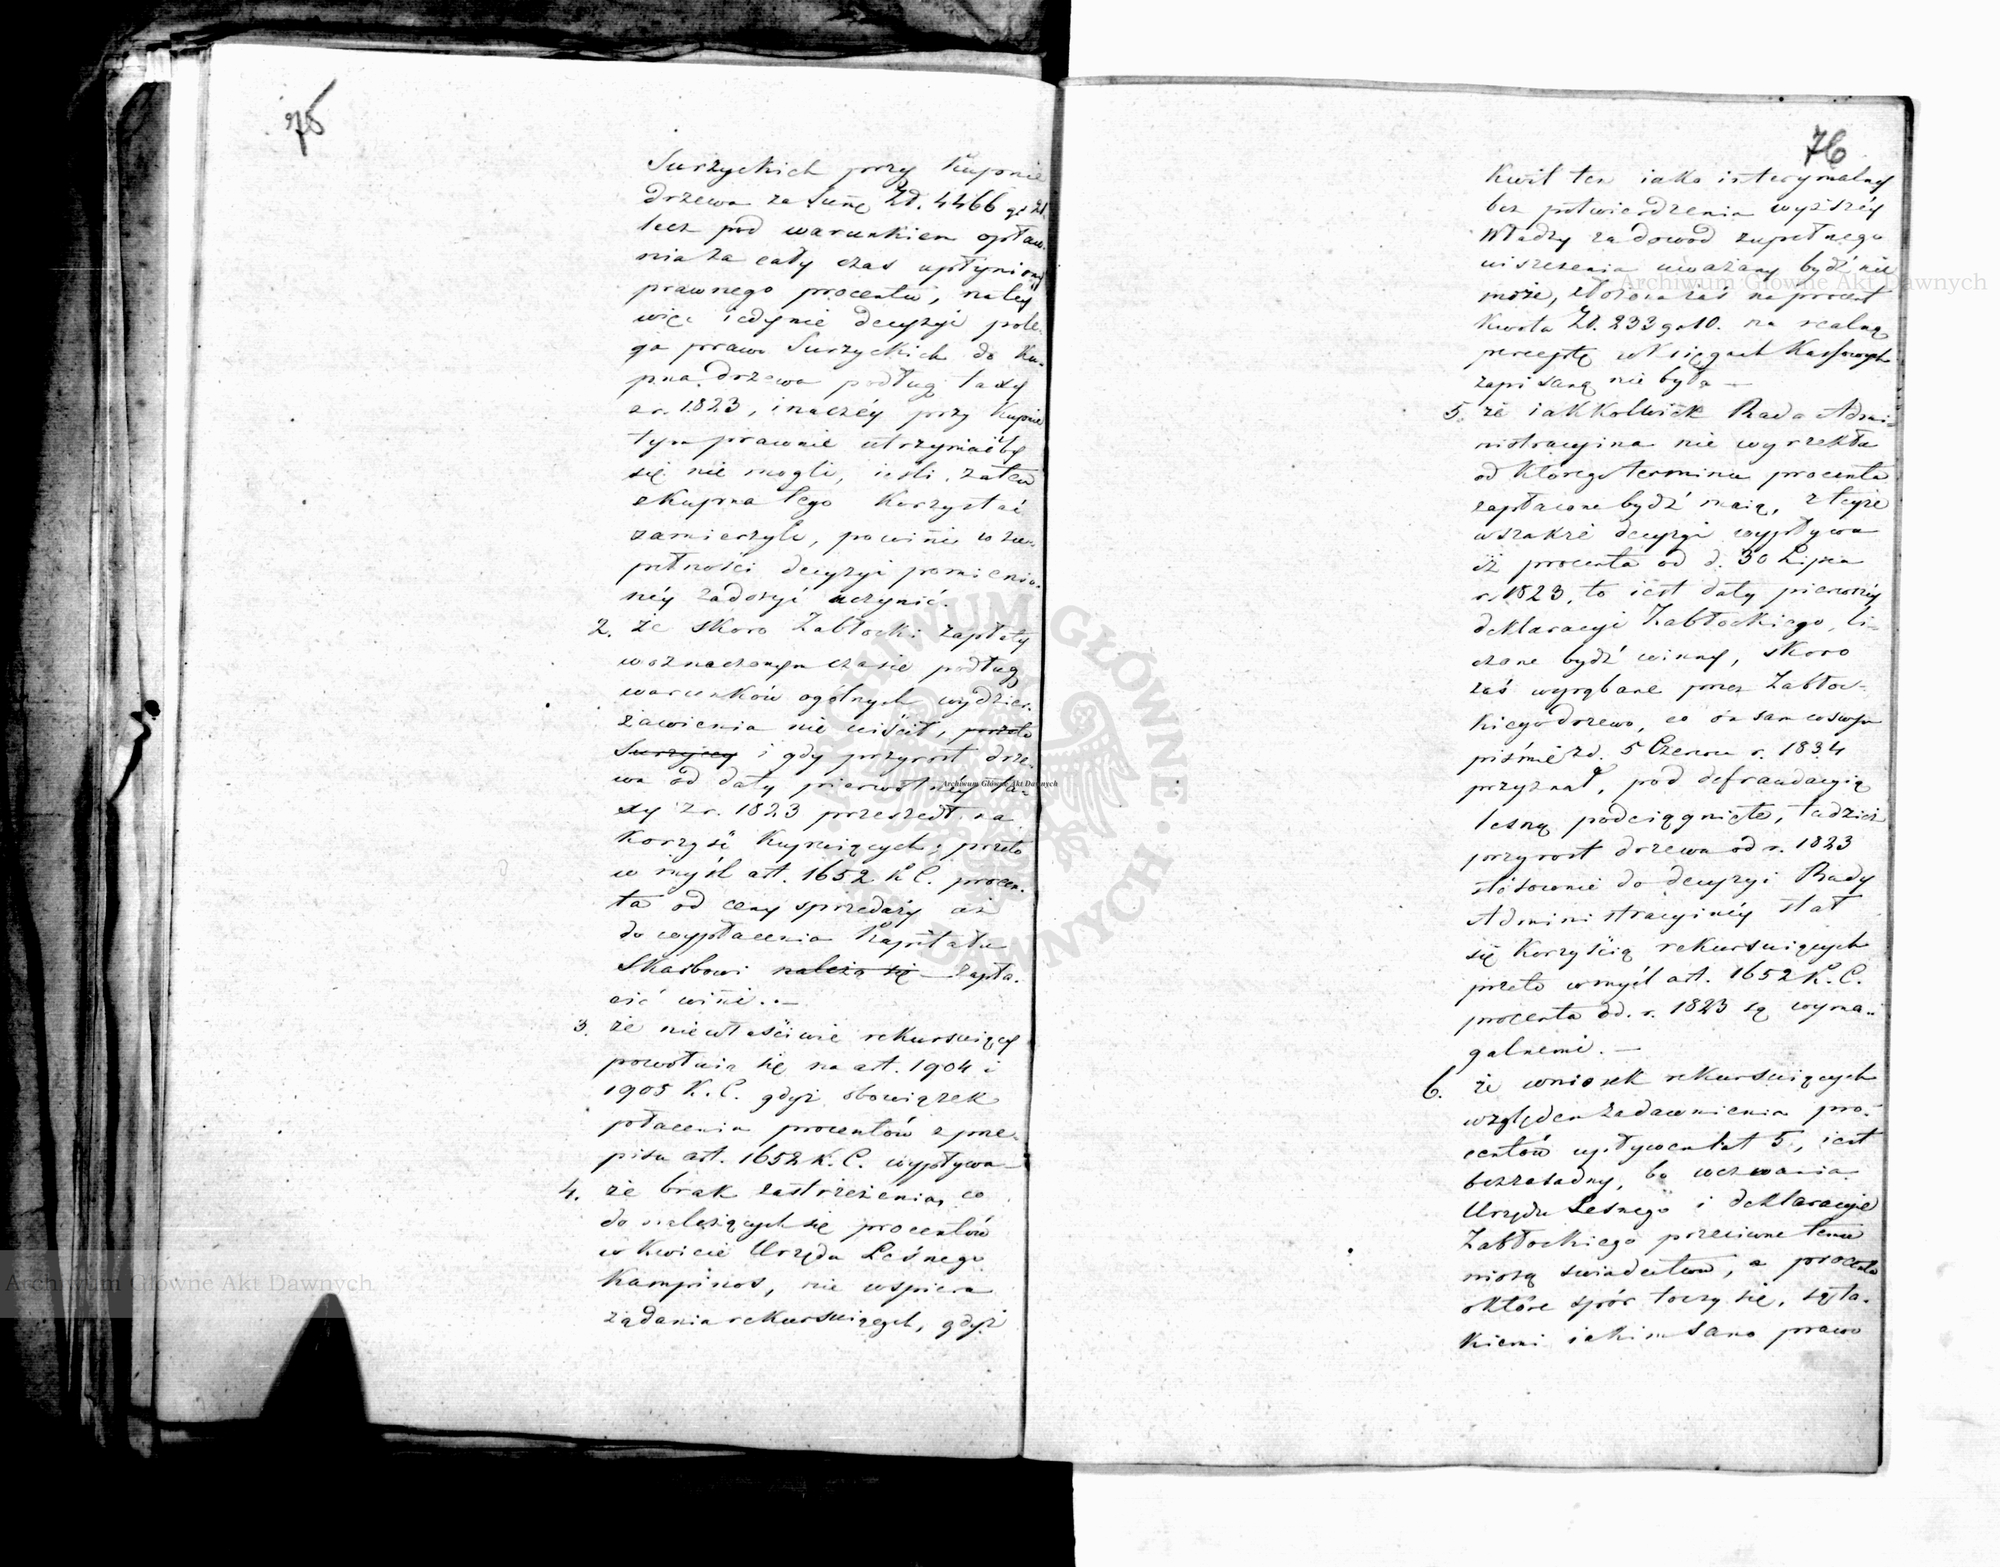 75
Surzyckich przy kupnie
drzewa za Sumę Zł. 4466 gr 21.
lecz pod warunkiem opłace-
nia za cały czas upłyniony
prawnego procentu, należy
więc iedynie decyzyi pole-
ga prawo Surzyckich do ku-
pna drzewa podług taxy
z r. 1823, inaczéy przy kupnie
tym prawnie utrzymaćby
się nie mogli, ieśli zatem
z kupna tego korzystać
zamierzyli, powinni w zu-
pełności decyzyi pomienio-
néy zadosyć uczynić.
2. że skoro Zabłocki zapłaty
w oznaczonym czasie podług
warunków ogólnych wydzier-
żawienia nie uiścił, przeto
Surzyccy i gdy przyrost drze-
wa od daty pierwotnéy ta-
xy z r. 1823 przeszedł na
korzyść kupuiących, przeto
w myśl art. 1652 K C. procen-
ta od ceny sprzedaży aż
do wypłacenia kapitału
Skarbowi należą się zapła-
cić winni. —
3. że niewłaściwie rekursuiący
powołuią się na art. 1904 i
1905 K. C. gdyż obowiązek
płacenia procentów z prze-
pisu art. 1652 K. C. wypływa —
4. że brak zastrzeżenia, co
do należących się procentów
w kwicie Urzędu Leśnego
Kampinos, nie wspiera
żądania rekursuiących, gdyż
76
kwit ten iako interymalny
bez potwierdzenia wyższéy
Władzy za dowód zupełnego
uiszczenia uważany bydź nie
może, złożona zaś na procent
kwota Zł. 233 gr 10. na realną
perceptę w Xięgach Kassowych
zapisaną nie była —
5. że iakkolwiek Rada Admi-
nistracyina nie wyrzekła
od którego terminu procenta
zapłacone bydź maią, z teyże
wszakże decyzyi wypływa
iż procenta od d. 30 Lipca
r. 1823, to iest daty pierwszéy
deklaracyi Zabłockiego, li-
czone bydź winny, skoro
zaś wyrąbane przez Zabłoc-
kiego drzewo, co on sam w swym
piśmie z d. 5 Czerwca r. 1834
przyznał, pod defraudacyią
leśną podciągnięte, tudzież
przyrost drzewa od r. 1823
stósownie do decyzyi Rady
Administracyinéy stał
się korzyścią rekursuiących
przeto w myśl art. 1652 K. C.
procenta od r. 1823 są wyma-
galnemi. —
6. że wniosek rekursuiących
względem zadawnienia pro-
centów upływem lat 5, iest
bezzasadny, bo wezwania
Urzędu Leśnego i deklaracyie
Zabłockiego przeciwne temu
niosą świadectwo, a procenta
o które spór toczy się, są ta-
kiemi iakim samo prawo
Archiwum Główne Akt Dawnych
Archiwum Główne Akt Dawnych
Archiwum Główne Akt Dawnych
ARCHIWUM GŁÓWNE AKT DAWNYCH